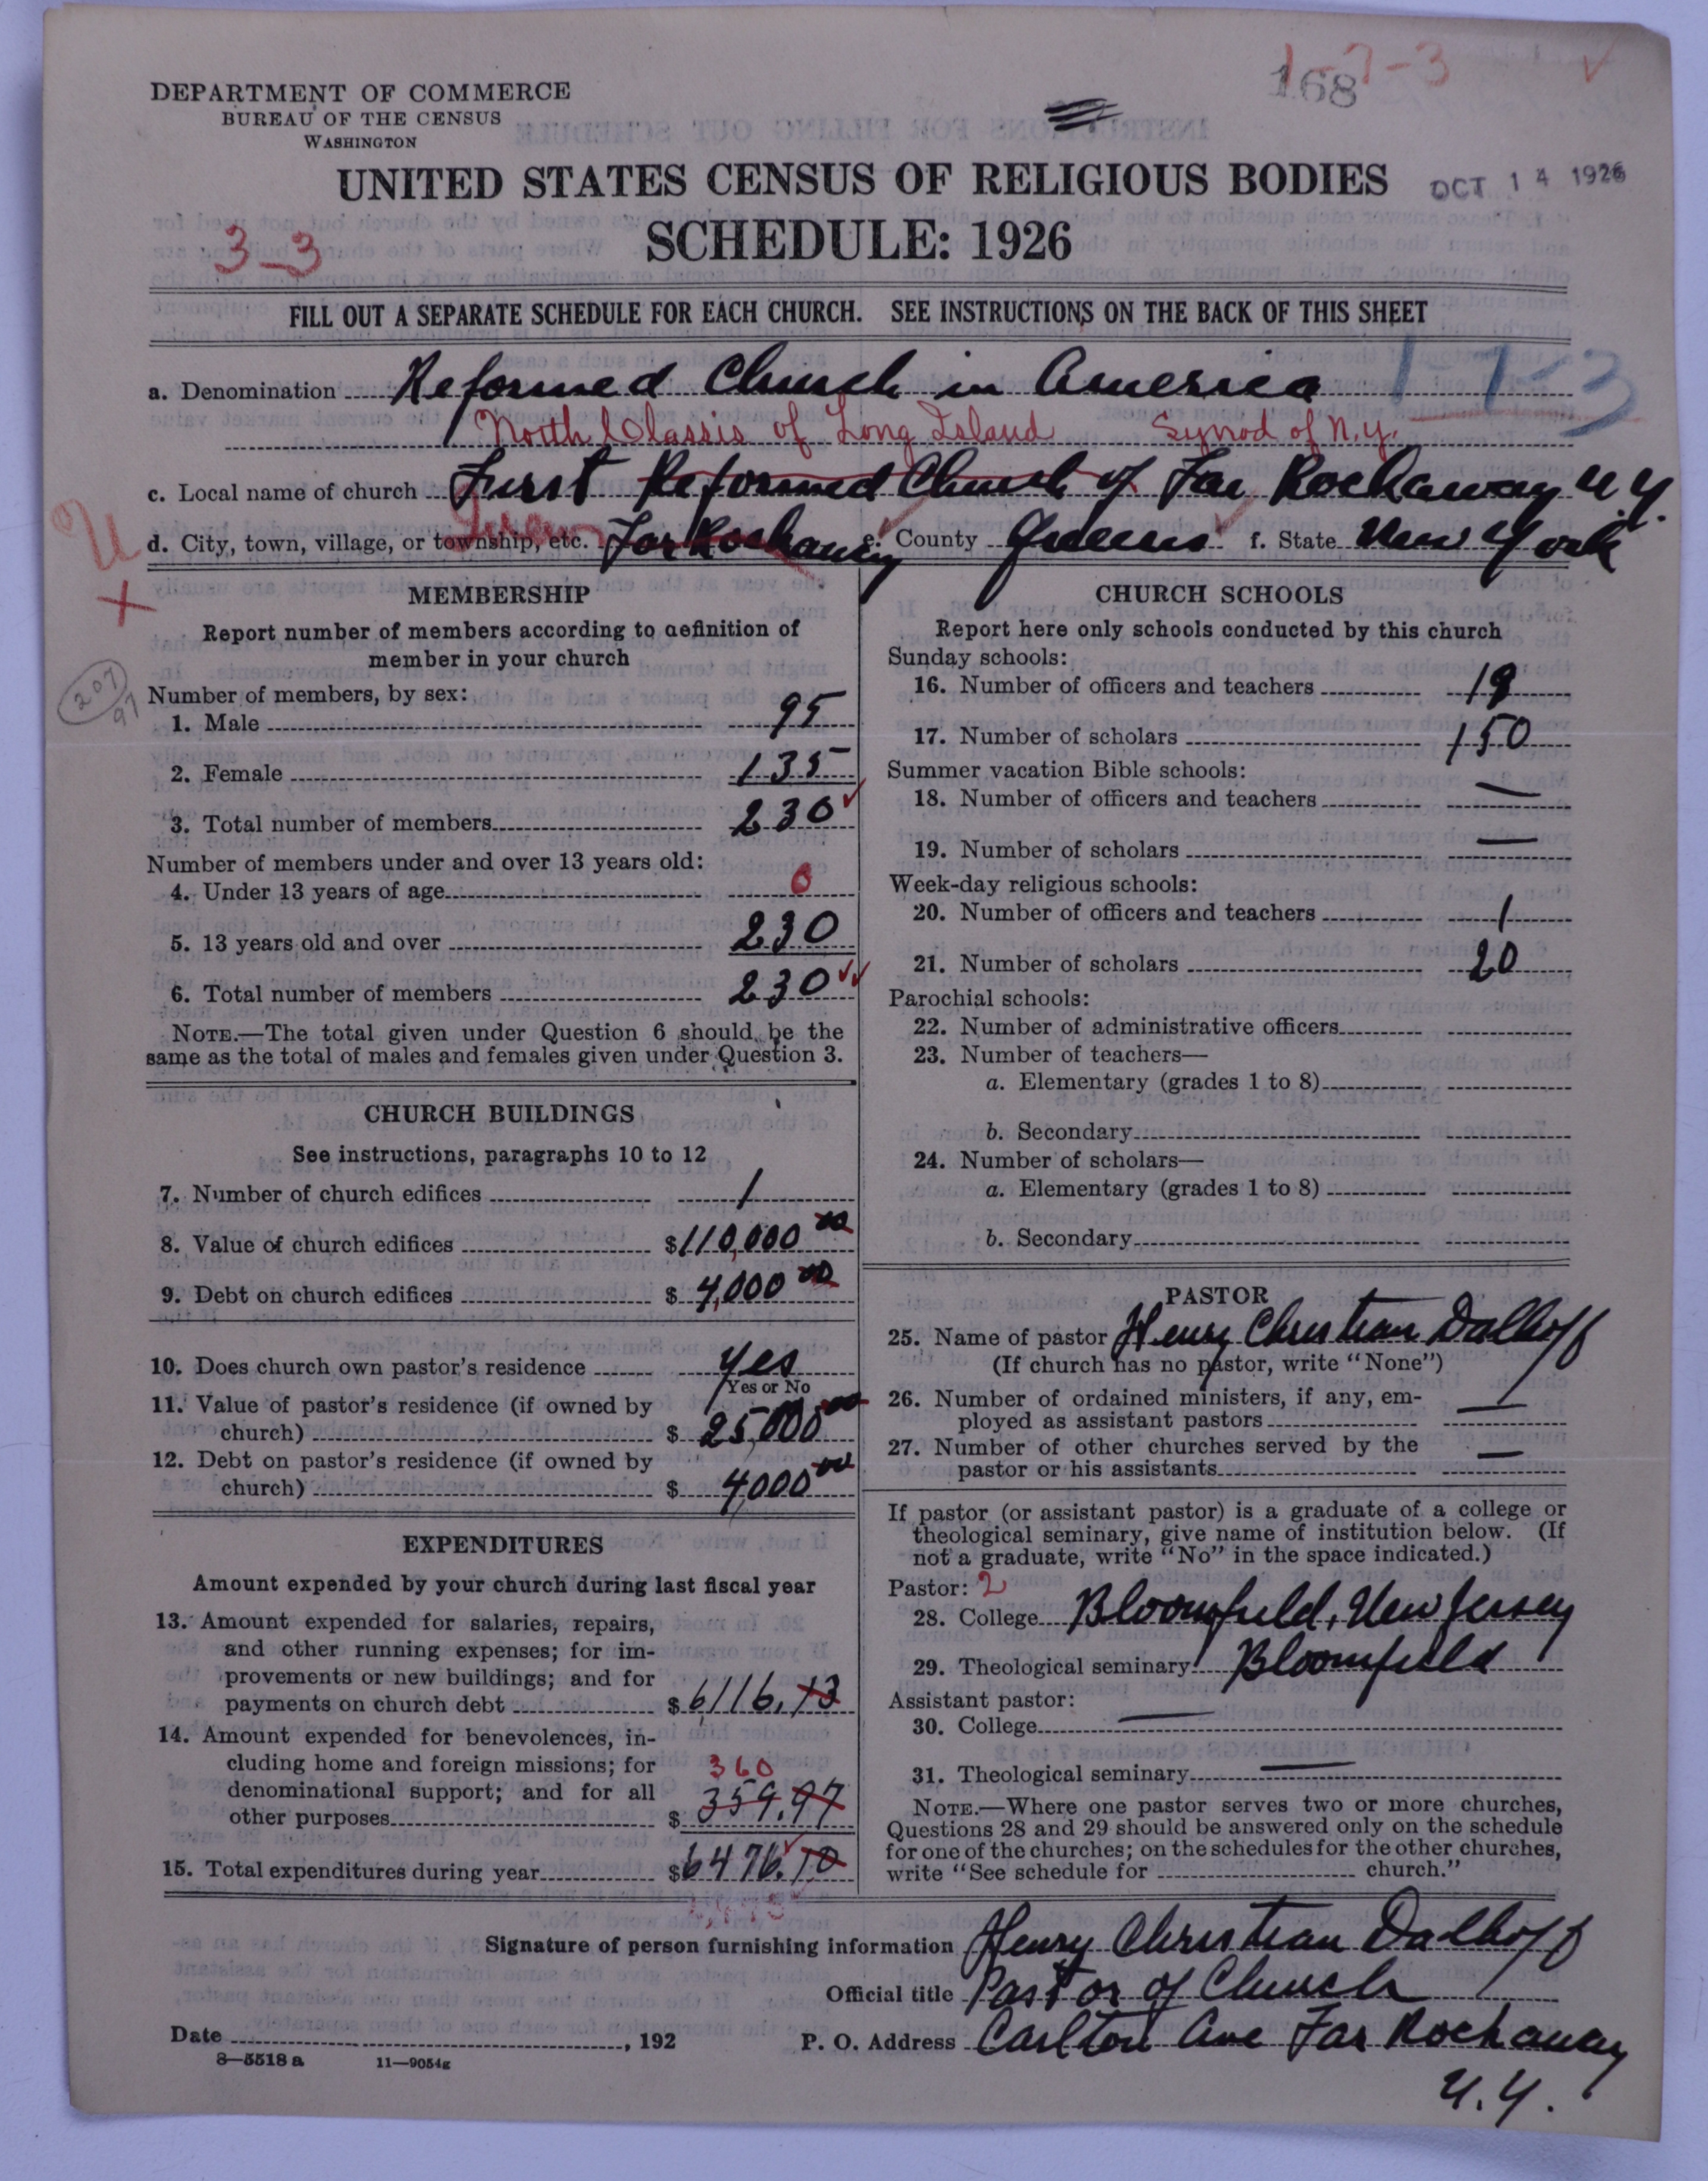 1-7-3
168
DEPARTMENT OF COMMERCE
BUREAU OF THE CENSUS
WASHINGTON
UNITED STATES CENSUS OF RELIGIOUS BODIES
OCT 14 1926
SCHEDULE: 1926
3-3
FILL OUT A SEPARATE SCHEDULE FOR EACH CHURCH. SEE INSTRUCTIONS ON THE BACK OF THIS SHEET
a. Denomination Reformed Church in America 1-7-3
North Classis of Long Island Synod of N.Y.
c. Local name of church First Reformed Church of Far Rockaway N.Y.
d. City, town, village, or township, etc. Far Rockaway e. County Queens f. State New York
MEMBERSHIP
Report number of members according to definition of
member in your church
207
97
Number of members, by sex:
1. Male 95
2. Female 135
3. Total number of members 230
Number of members under and over 13 years old:
4. Under 13 years of age 0
5. 13 years old and over 230
6. Total number of members 230
NOTE.—The total given under Question 6 should be the
same as the total of males and females given under Question 3.
CHURCH BUILDINGS
See instructions, paragraphs 10 to 12
7. Number of church edifices 1
8. Value of church edifices $110,000 00
9. Debt on church edifices $4,000 00
10. Does church own pastor's residence yes
Yes or No
11. Value of pastor's residence (if owned by
church) $25,000 00
12. Debt on pastor's residence (if owned by
church) $4000 00
EXPENDITURES
Amount expended by your church during last fiscal year
13. Amount expended for salaries, repairs,
and other running expenses; for im-
provements or new buildings; and for
payments on church debt $6,116.13
14. Amount expended for benevolences, in-
cluding home and foreign missions; for 360
denominational support; and for all
other purposes $359.97
15. Total expenditures during year $6476.10
CHURCH SCHOOLS
Report here only schools conducted by this church
Sunday schools:
16. Number of officers and teachers 19
17. Number of scholars 150
Summer vacation Bible schools:
18. Number of officers and teachers —
19. Number of scholars —
Week-day religious schools:
20. Number of officers and teachers 1
21. Number of scholars 20
Parochial schools:
22. Number of administrative officers
23. Number of teachers—
a. Elementary (grades 1 to 8)
b. Secondary
24. Number of scholars—
a. Elementary (grades 1 to 8)
b. Secondary
PASTOR
25. Name of pastor Henry Christian Dalhoff
(If church has no pastor, write "None")
26. Number of ordained ministers, if any, em-
ployed as assistant pastors —
27. Number of other churches served by the
pastor or his assistants —
If pastor (or assistant pastor) is a graduate of a college or
theological seminary, give name of institution below. (If
not a graduate, write "No" in the space indicated.)
Pastor: 2
28. College Bloomfield, New Jersey
29. Theological seminary Bloomfield
Assistant pastor:
30. College —
31. Theological seminary —
NOTE.—Where one pastor serves two or more churches,
Questions 28 and 29 should be answered only on the schedule
for one of the churches; on the schedules for the other churches,
write "See schedule for church."
Signature of person furnishing information Henry Christian Dalhoff
Official title Pastor of Church
Date , 192
P. O. Address Carlton Ave Far Rockaway
N.Y.
8—5518 a 11—9054g